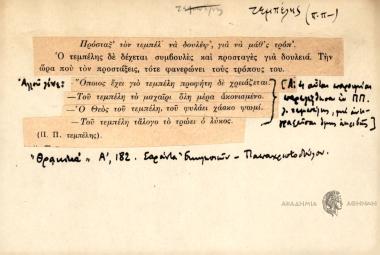 τεμπέλης
τεμπέλης (π.π-)
Πρόσταξ' τὸν τεμπέλ' νὰ δουλέψ', γιὰ νὰ μάθ'ς τρόπ'.
Ὁ τεμπέλης δὲ δέχεται συμβουλὲς καὶ προσταγὲς γιὰ δουλειά. Τὴν
ὥρα ποὺ τὸν προστάξεις, τότε φανερώνει τοὺς τρόπους του.
Ἀλλοῦ λένε:
Ὅποιος ἔχει γιὸ τεμπέλη προφήτη δὲ χρειάζεται.
—Τοῦ τεμπέλη τὸ μαχαίρι ὅλη μέρα ἀκονισμένο.
—Ὁ Θεὸς τοῦ τεμπέλη, τοῦ φυλάει χάσκο ψωμί.
—Τοῦ τεμπέλη τἄλογο τὸ τρώει ὁ λύκος.
[Αἱ 4 αὗται παροιμίαι
ἐν ΠΠ.
λ. τεμπέλης,
(Π. Π. τεμπέλης).
"Θρᾳκικὰ" Α', 182. Σαράντα Ἐκκλησιῶν - Παπαχριστοδούλου.
ΑΚΑΔΗΜΙΑ ΑΘΗΝΩΝ